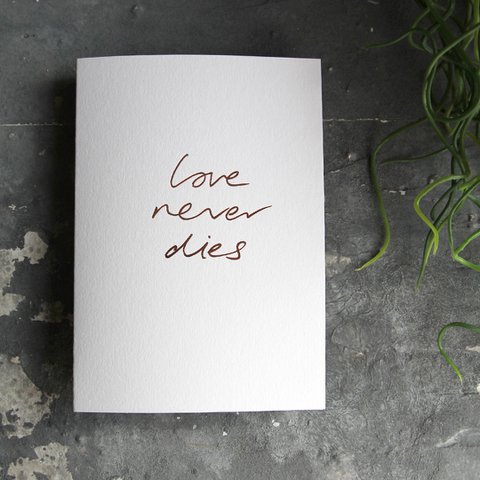 love
never
dies